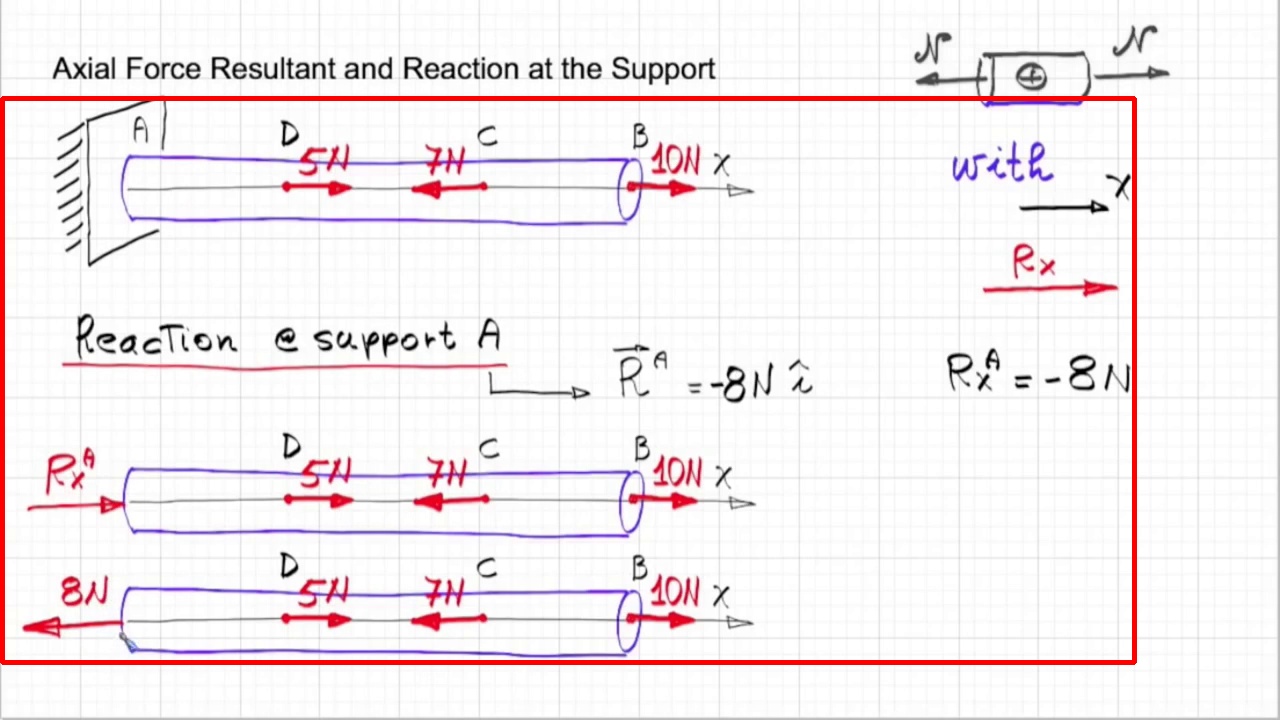 Axial Force Resultant and Reaction at the Support
N N
A D 5N 7N C B 10N x
with
x
Rx
Reaction @ support A
R^A = -8N î
Rx^A = -8N
Rx^A D 5N 7N C B 10N x
8N D 5N 7N C B 10N x